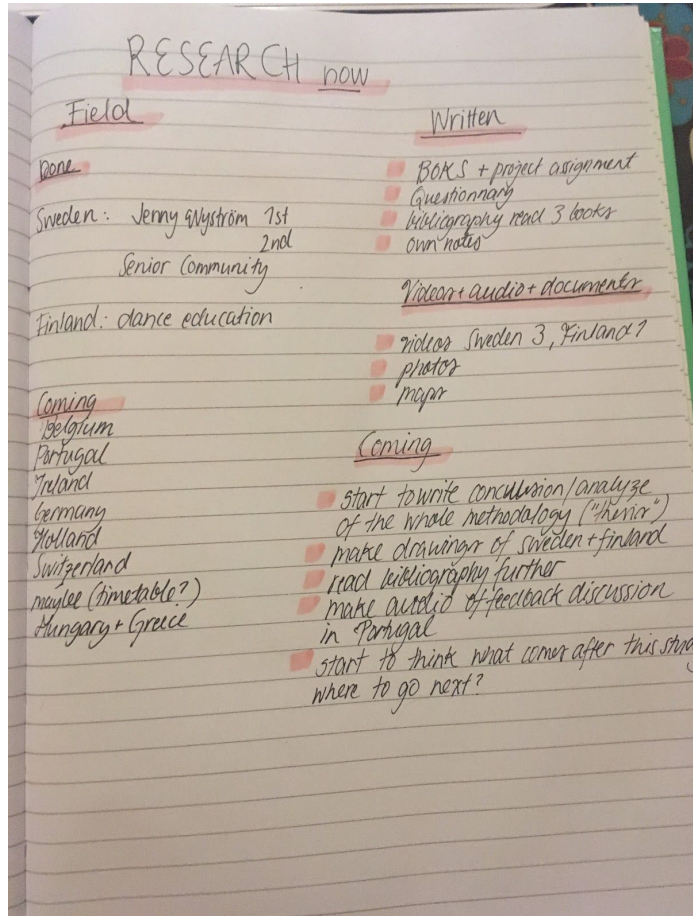 RESEARCH now
Field
Done
Sweden: Jenny Nyström 1st
2nd
Senior Community
Finland: dance education
Coming
Belgium
Portugal
Ireland
Germany
Holland
Switzerland
maybee (timetable?)
Hungary + Greece
Written
BOKS + project assignment
Questionnary
bibliography read 3 books
own notes
Videos + audio + documents
videos Sweden 3, Finland 1
photos
maps
Coming
start to write conclusion/analyze
of the whole methodology ("thesis")
make drawings of sweden + finland
read bibliography further
make audio of feedback discussion
in Portugal
start to think what comes after this stud
where to go next?